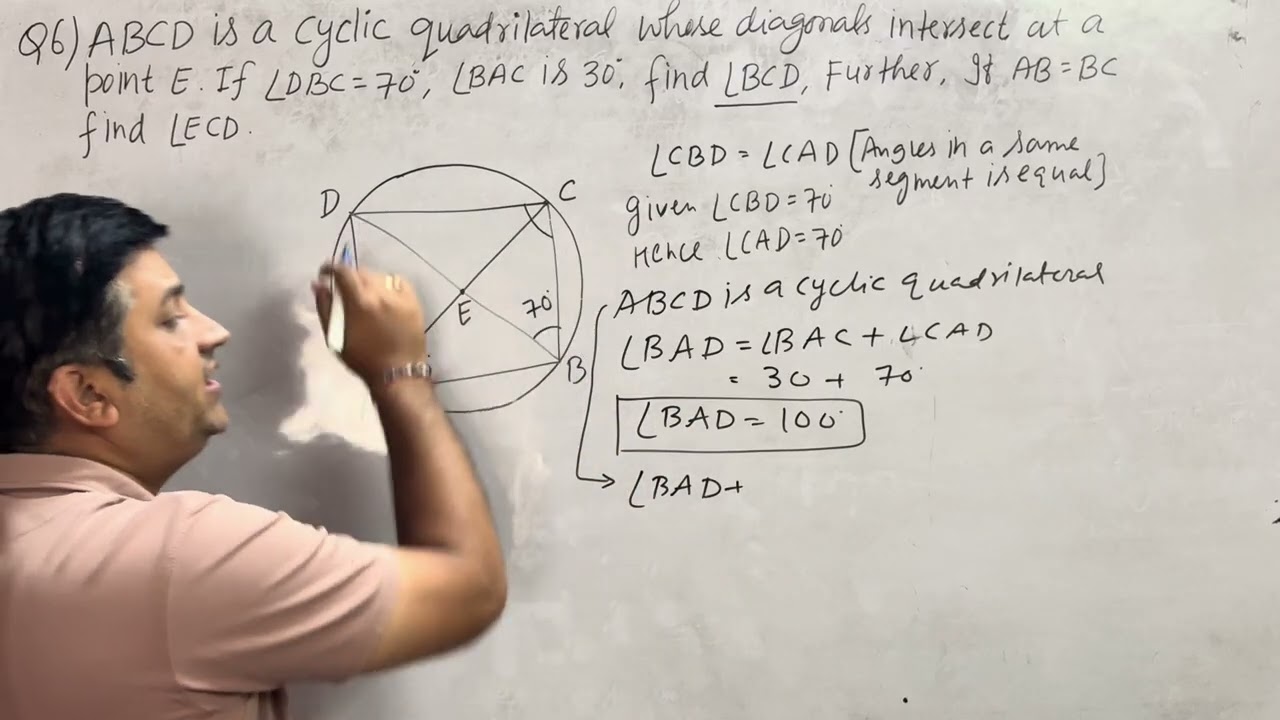 Q6) ABCD is a cyclic quadrilateral whose diagonals intersect at a
point E. If ∠DBC = 70°, ∠BAC is 30°, find ∠BCD, Further, If AB = BC
find ∠ECD.
∠CBD = ∠CAD [Angles in a same
segment is equal]
given ∠CBD = 70°
Hence ∠CAD = 70°
ABCD is a cyclic quadrilateral
∠BAD = ∠BAC + ∠CAD
= 30 + 70°
∠BAD = 100°
∠BAD +
D
C
E
70°
B